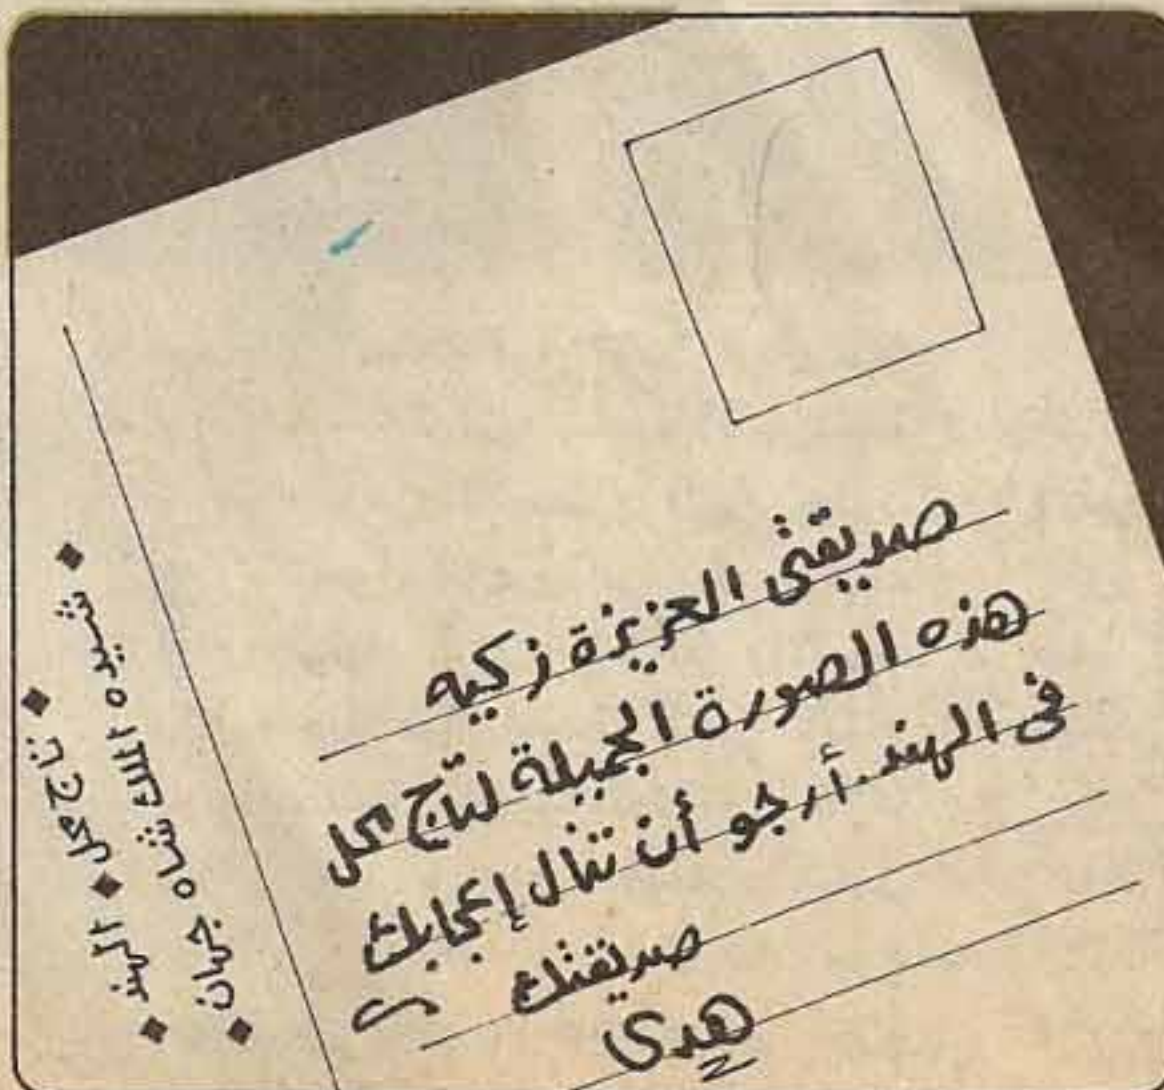 صديقتي العزيزة زكيه
هذه الصورة الجميلة لتاج محل
في الهند. أرجو أن تنال إعجابك
صديقتك
هدى
◆ تاج محل ◆ الهند ◆
◆ شيده الملك شاه جهان ◆